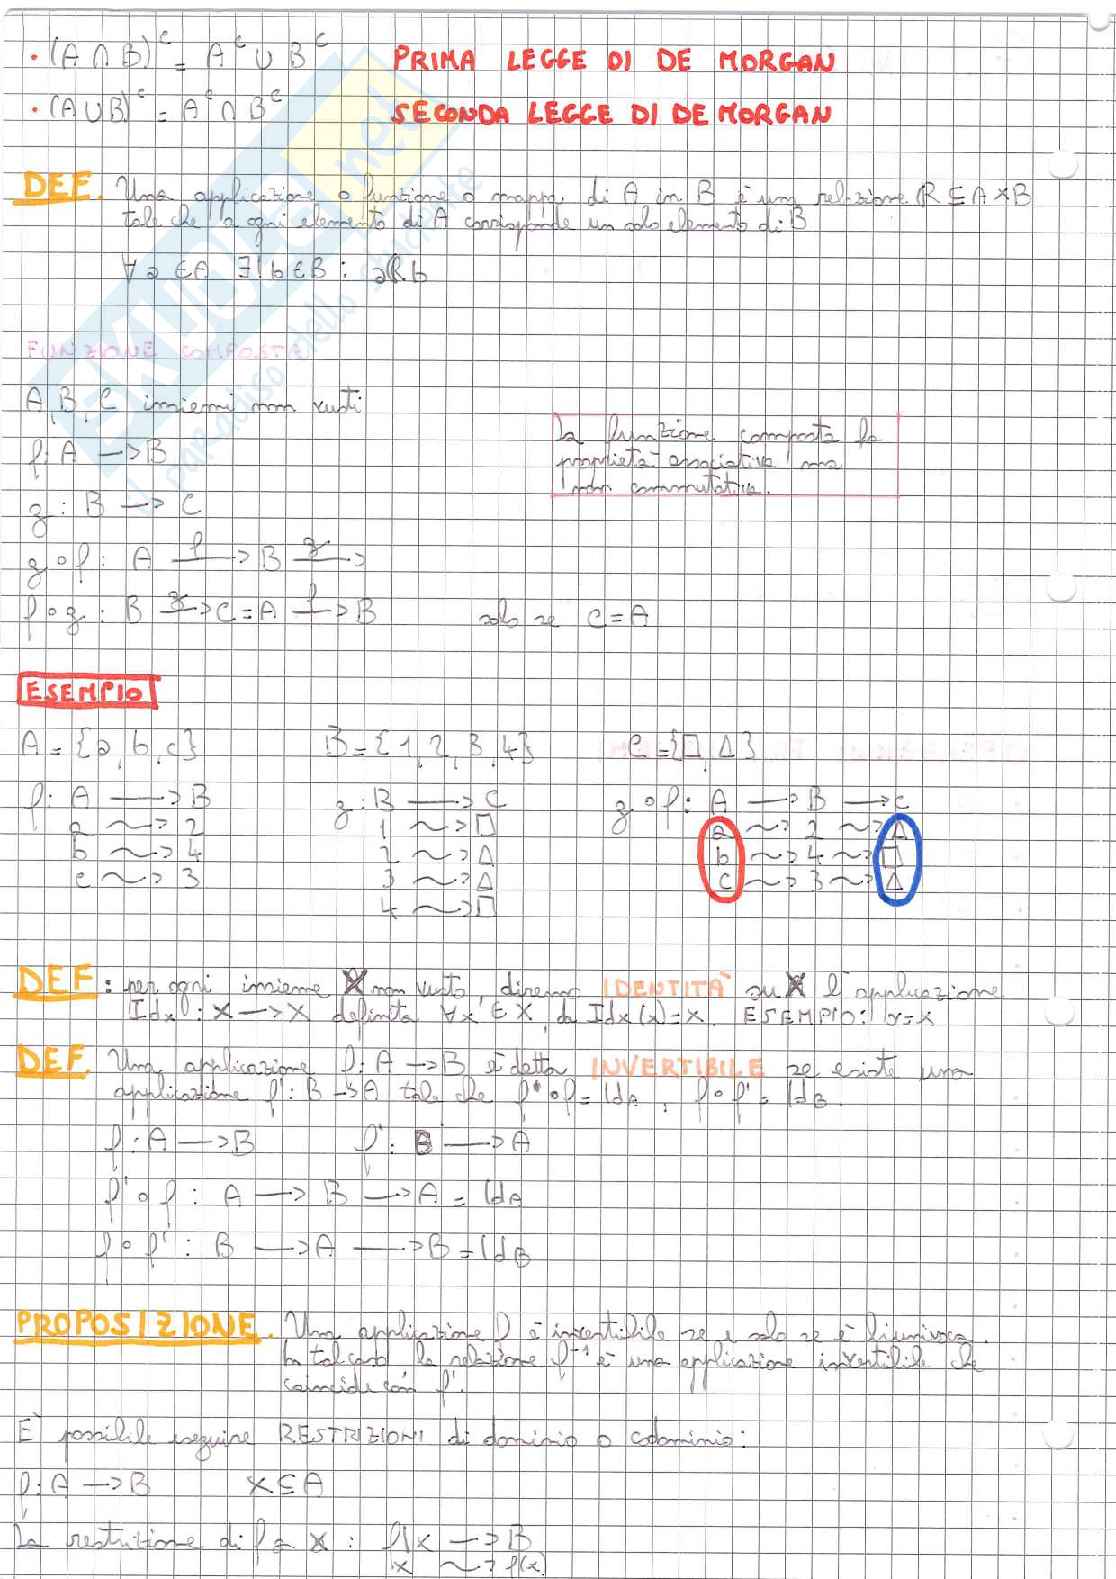 · (A ∩ B)ᶜ = Aᶜ ∪ Bᶜ PRIMA LEGGE DI DE MORGAN
· (A ∪ B)ᶜ = Aᶜ ∩ Bᶜ SECONDA LEGGE DI DE MORGAN
DEF. Una applicazione o funzione o mappa di A in B è una relazione R ⊆ A×B
tale che a ogni elemento di A corrisponde un solo elemento di B
∀ a ∈ A ∃! b ∈ B : a R b
FUNZIONE COMPOSTA
A, B, C insiemi non vuoti
f: A → B
g: B → C
g∘f: A →f B →g
f∘g: B →g C = A →f B solo se C = A
La funzione composta fa
proprietà associativa ma
non commutativa.
ESEMPIO
A = {a, b, c} B = {1, 2, 3, 4} C = {□, △}
f: A → B g: B → C g∘f: A → B → C
a ⇝ 2 1 ⇝ □ a ⇝ 2 ⇝ △
b ⇝ 4 2 ⇝ △ b ⇝ 4 ⇝ □
c ⇝ 3 3 ⇝ △ c ⇝ 3 ⇝ △
4 ⇝ □
DEF: per ogni insieme X non vuoto, diremo IDENTITÀ su X l'applicazione
Idx : X → X definita ∀x ∈ X, da Idx(x) = x. ESEMPIO: y = x
DEF. Una applicazione f: A → B è detta INVERTIBILE se esiste una
applicazione f': B → A tale che f'∘f = IdA, f∘f' = IdB.
f: A → B f': B → A
f'∘f: A → B → A = IdA
f∘f': B → A → B = IdB
PROPOSIZIONE. Una applicazione f è invertibile se e solo se è biunivoca.
In tal caso la relazione f⁻¹ è una applicazione invertibile che
coincide con f'.
È possibile eseguire RESTRIZIONI di dominio o codominio:
f: A → B X ⊆ A
La restrizione di f a X : f|X → B
x ⇝ f(x)